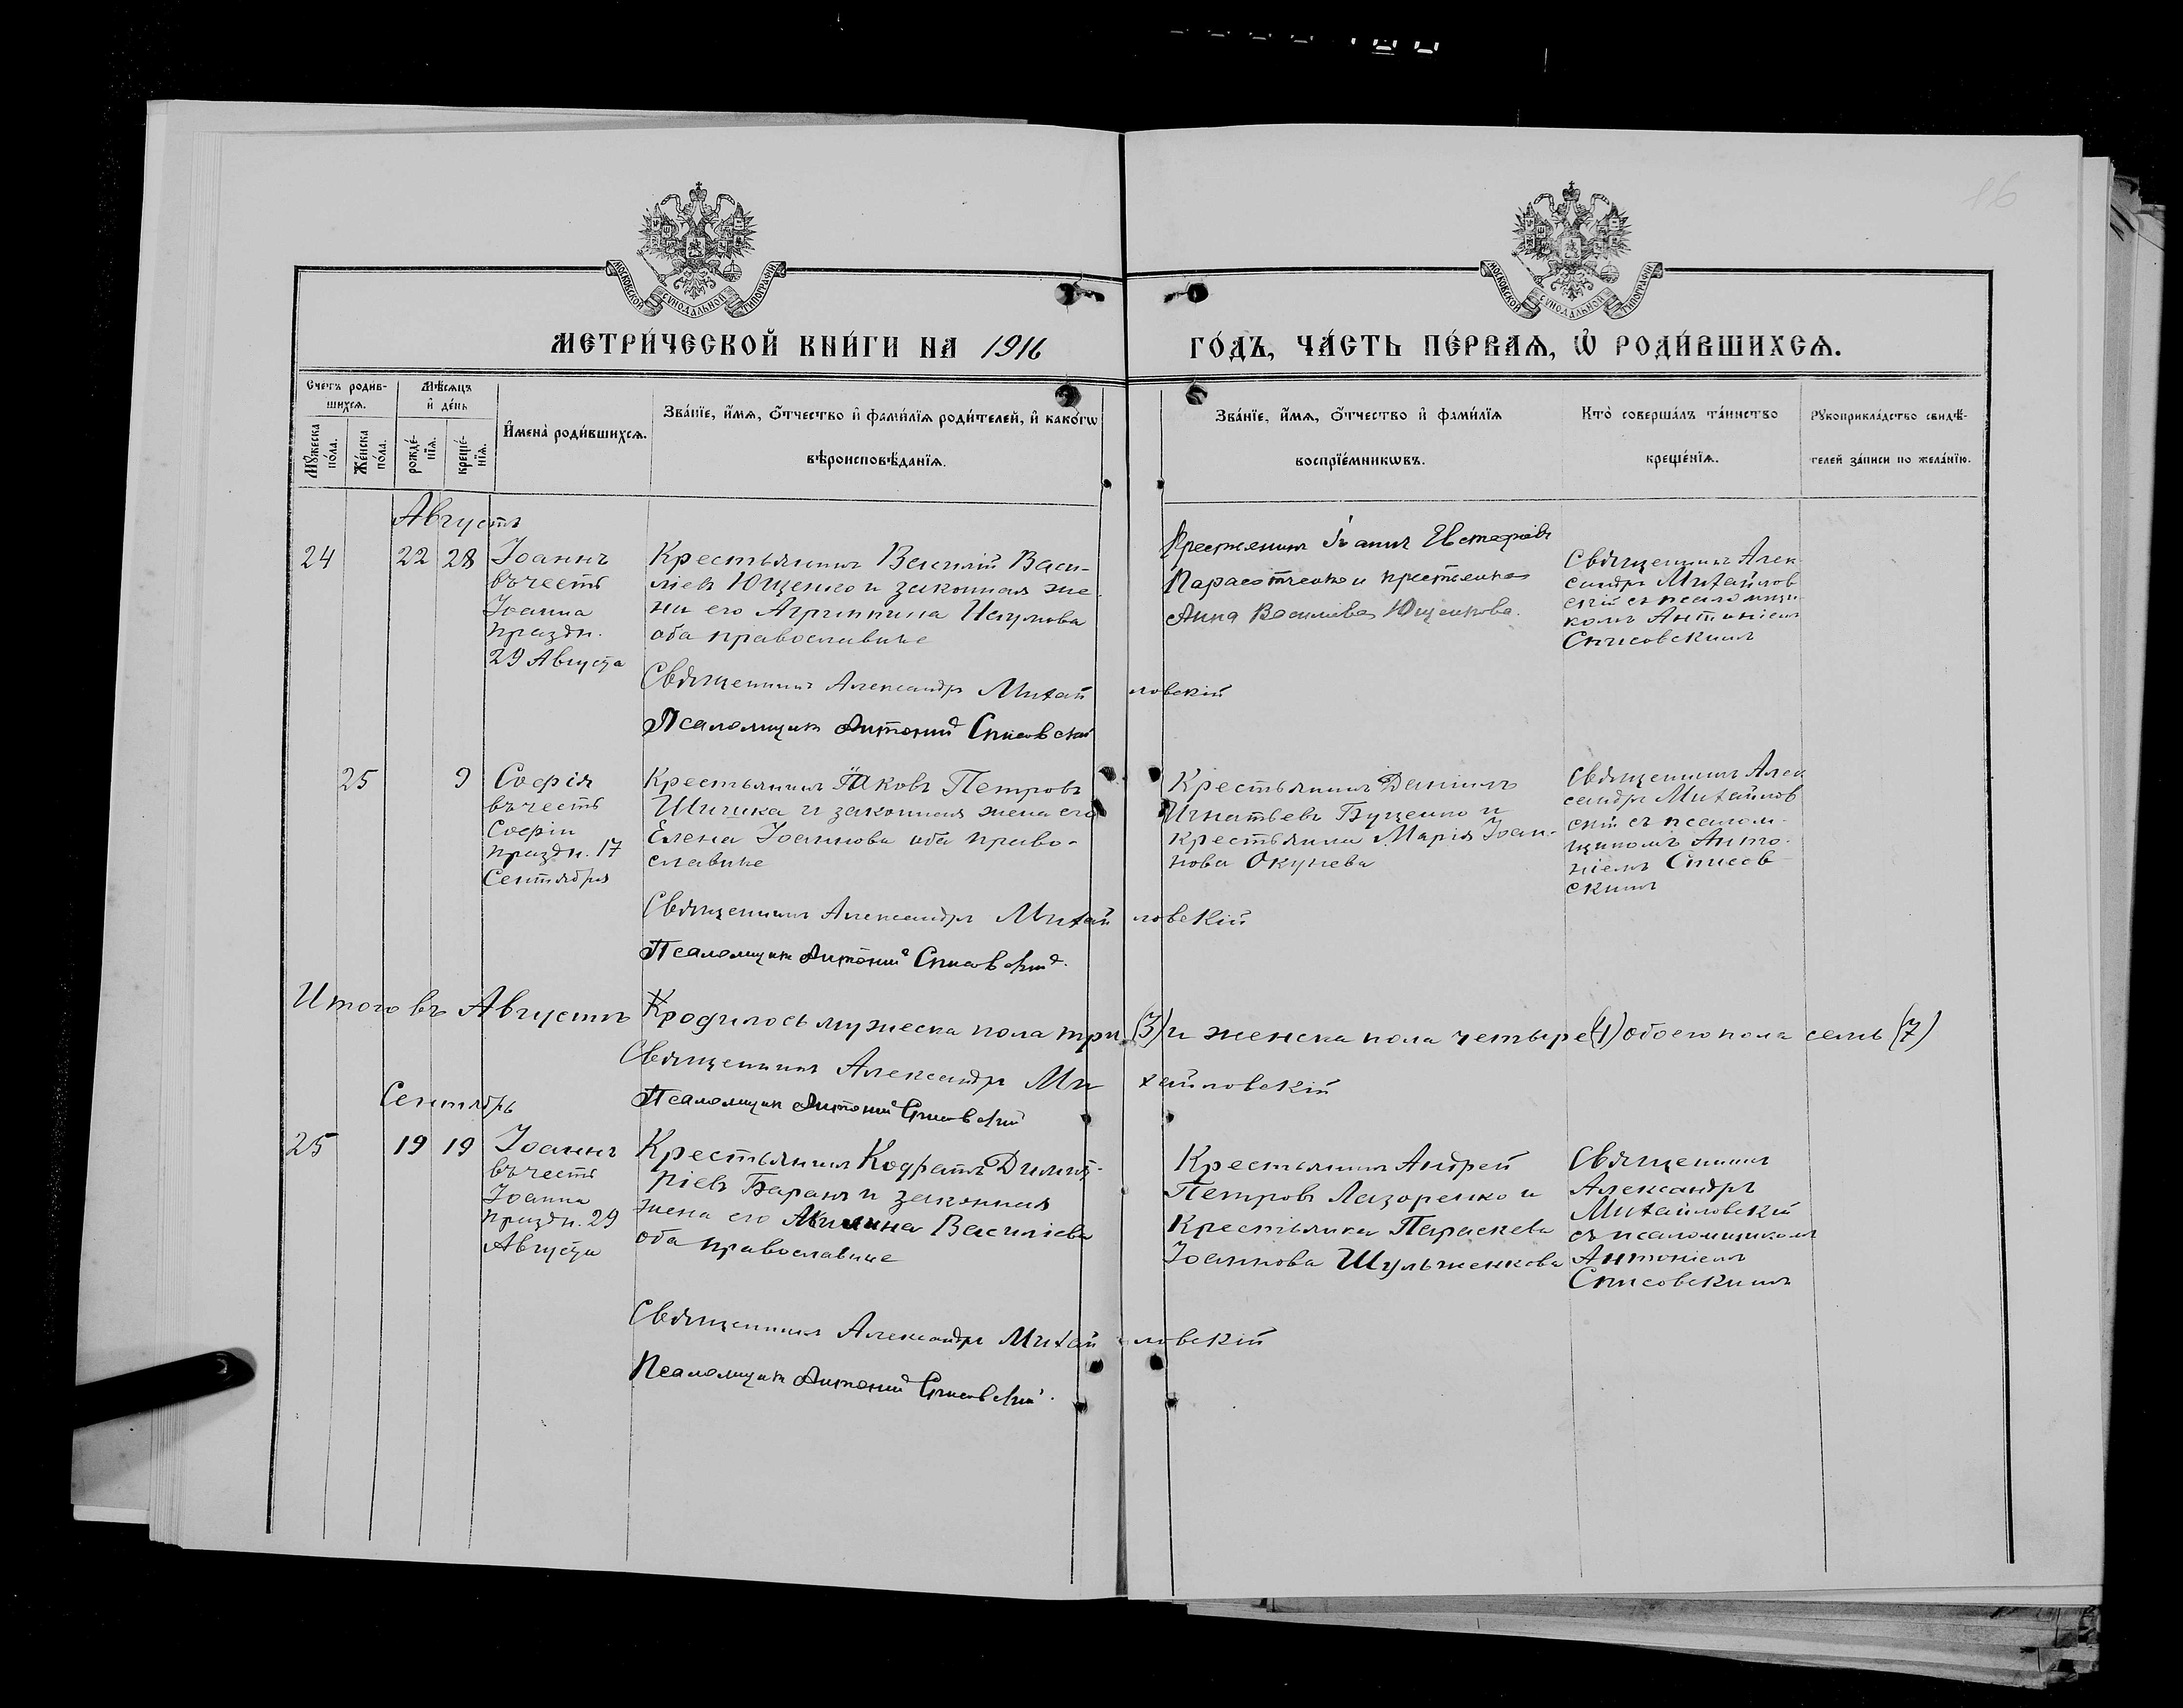 86
МОСКОВСКОЙ СУНОДАЛЬНОЙ ТИПОГРАФІИ
МОСКОВСКОЙ СУНОДАЛЬНОЙ ТИПОГРАФІИ
МЕТРИ́ЧЕСКОЙ КНИ́ГИ НА 1916
ГО́ДЪ, ЧА́СТЬ ПЕ́РВАѦ, Ѡ РОДИ́ВШИХСѦ.
Счетъ роди́в-
шихсѧ.
Мѣсѧцъ
и҆ де́нь
Мꙋжеска
по́ла.
Же́нска
по́ла.
рожде́-
нїѧ.
креще́-
нїѧ.
И҆мена̀ роди́вшихсѧ.
Зва́нїе, и҆́мѧ, ѻ҆́тчество и҆ фами́лїѧ роди́телей, и҆ како́гѡ
вѣроисповѣ́данїѧ.
Зва́нїе, и҆́мѧ, ѻ҆́тчество и҆ фами́лїѧ
воспрїе́мникѡвъ.
Кто̀ соверша́лъ та́инство
креще́нїѧ.
Рꙋкоприкла́дство свидѣ́-
телей за́писи по жела́нїю.
Августъ
24 22 28
Іоаннъ
въ честь
Іоанна
праздн.
29 Августа
Крестьянинъ Василій Васи-
ліевъ Ющенко и законная же-
на его Агриппина Наумова
оба православные
Крестьянинъ Іоаннъ Евстафіевъ
и крестьянка
Анна Василіева Ющенкова.
Священникъ Алек-
сандръ Михайлов
скій съ псаломщи-
комъ Антоніемъ
Списовскимъ
Священникъ Александръ Михайловскій
Псаломщикъ Антоній Списовскій
25 9
Софія
въ честь
Софіи
праздн. 17
Сентября
Крестьянинъ Іаковъ Петровъ
Шишка и законная жена его
Елена Іоаннова оба право-
славные
Крестьянинъ Даніилъ
Игнатьевъ Буценко и
крестьянка Марія Іоан-
нова Окунева
Священникъ Алек
сандръ Михайлов
скій съ псалом-
щикомъ Анто-
ніемъ Списов-
скимъ
Священникъ Александръ Михайловскій
Псаломщикъ Антоній Списовскій.
Итого въ Августѣ родилось мужеска пола три (3) и женска пола четыре (4) обоего пола семь (7)
Священникъ Александръ Михайловскій
Псаломщикъ Антоній Списовскій
Сентябрь
25 19 19
Іоаннъ
въ честь
Іоанна
праздн. 29
Августа
Крестьянинъ Кодратъ Димит-
ріевъ Баранъ и законная
жена его Акилина Василіева
оба православные
Крестьянинъ Андрей
Петровъ Лазоренко и
Крестьянка Параскева
Іоаннова Шульженкова
Священникъ
Александръ
Михайловскій
съ псаломщикомъ
Антоніемъ
Списовскимъ
Священникъ Александръ Михайловскій
Псаломщикъ Антоній Списовскій.